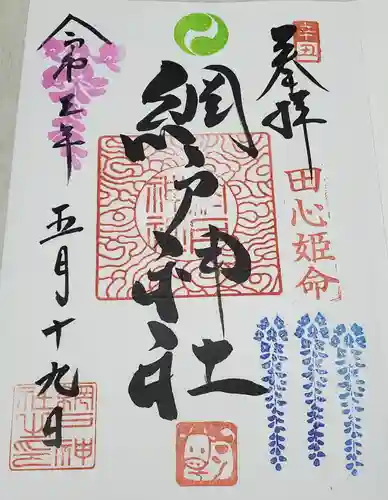 辛丑
奉拝
田心姫命
網戸神社
令和三年
五月十九日
網戸神
社之印